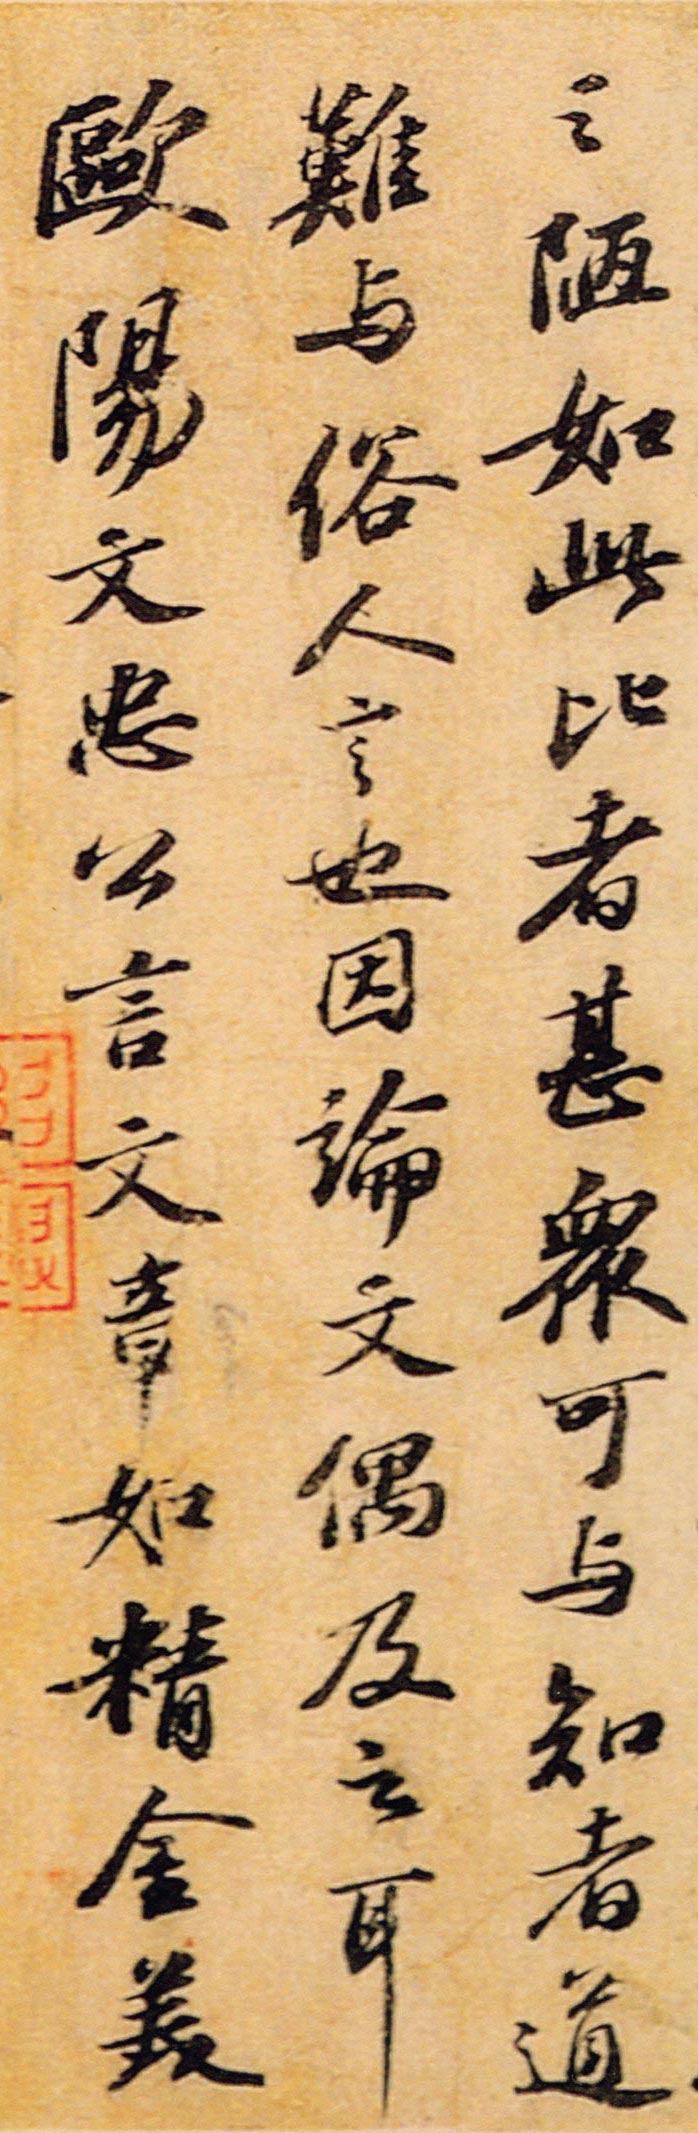 之陋如此比者甚衆可与知者道
難与俗人言也因論文偶及之耳
歐陽文忠公言文章如精金美